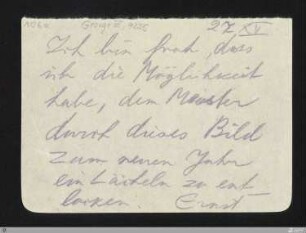 27/XV
Ich bin froh, dass
ich die Möglichkeit
habe, dem Meister
durch dieses Bild
zum neuen Jahr
ein Lächeln zu ent
locken. Ernst